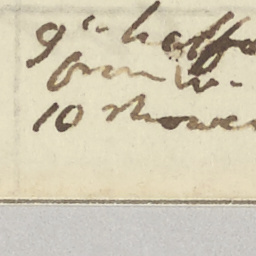 9th half
from W.
10 shower